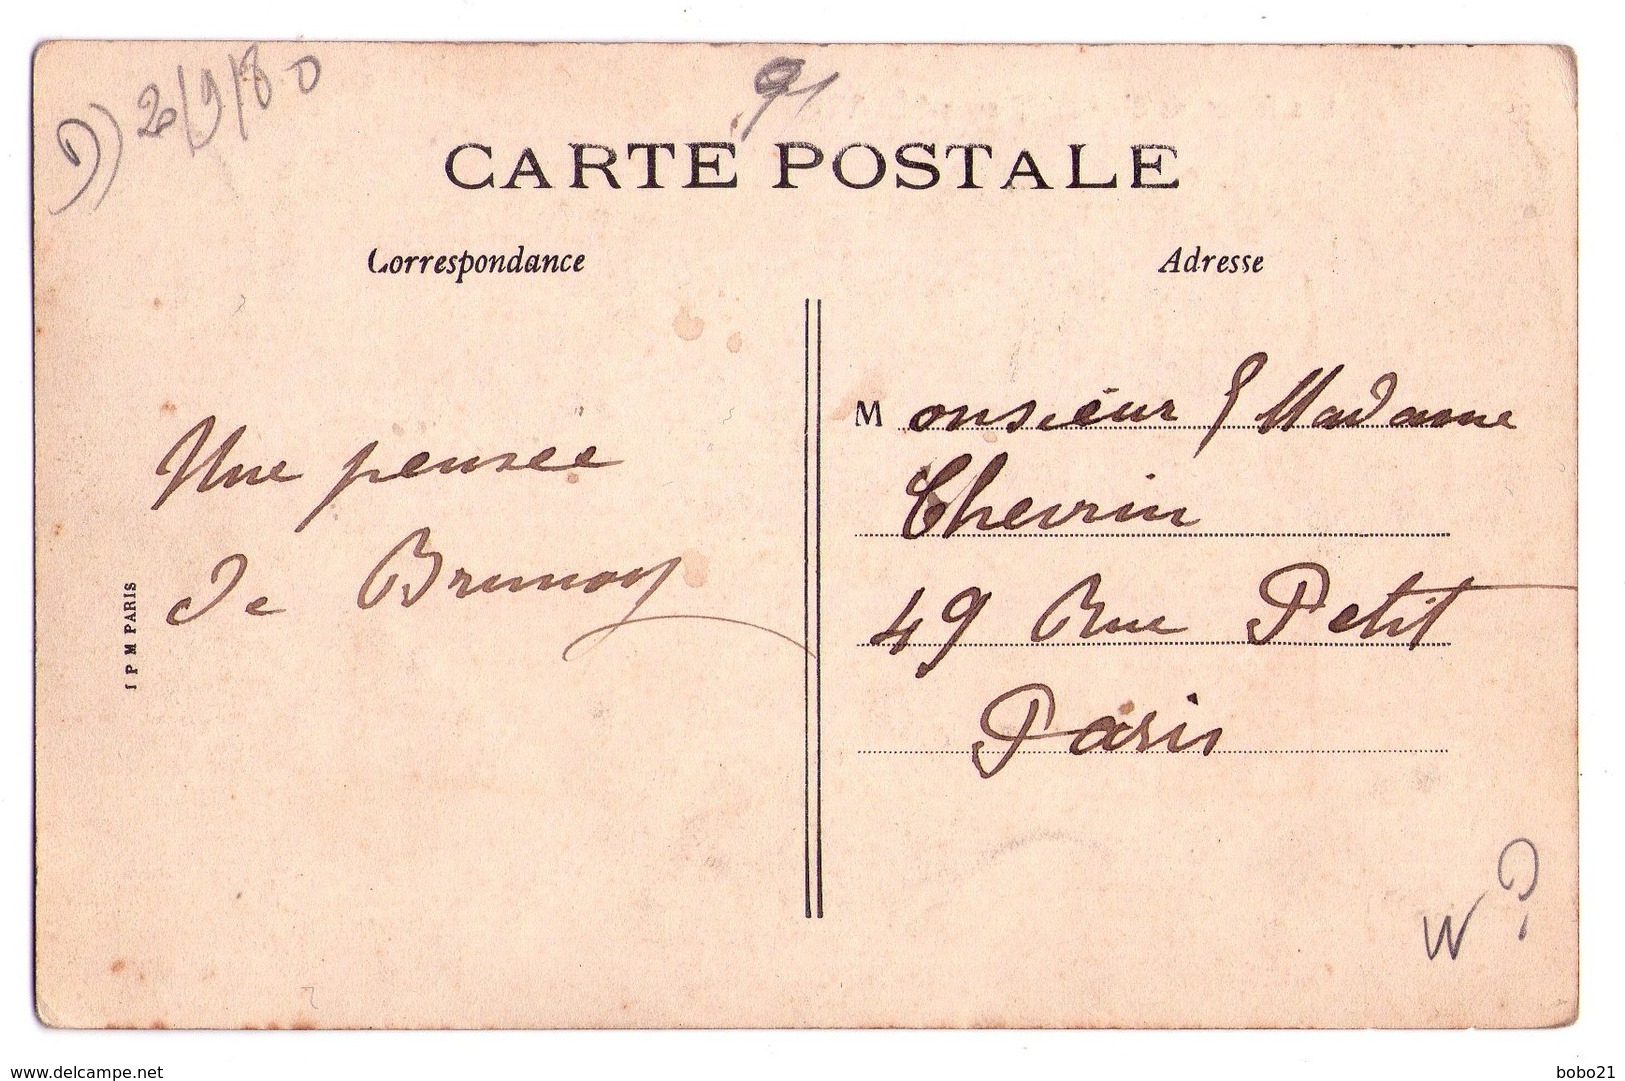 D) 26/9/80
91
CARTE POSTALE
Correspondance
Adresse
Une pensee
de Brunoy
I P M PARIS
Monsieur & Madame
Chevrin
49 Rue Petit
Paris
W?
www.delcampe.net
bobo21